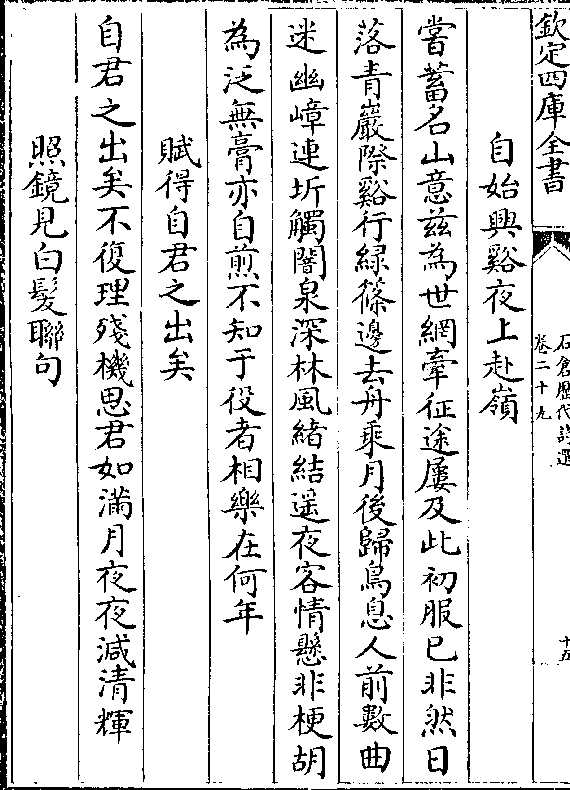 欽定四庫全書
石倉歷代詩選
卷二十九
十五
自始興谿夜上赴嶺
嘗蓄名山意茲為世網牽征途屢及此初服已非然日
落青巖際谿行綠篠邊去舟乘月後歸鳥息人前數曲
迷幽嶂連圻觸闇泉深林風緒結遥夜客情懸非梗胡
為泛無膏亦自煎不知于役者相樂在何年
賦得自君之出矣
自君之出矣不復理殘機思君如滿月夜夜減清輝
照鏡見白髮聯句